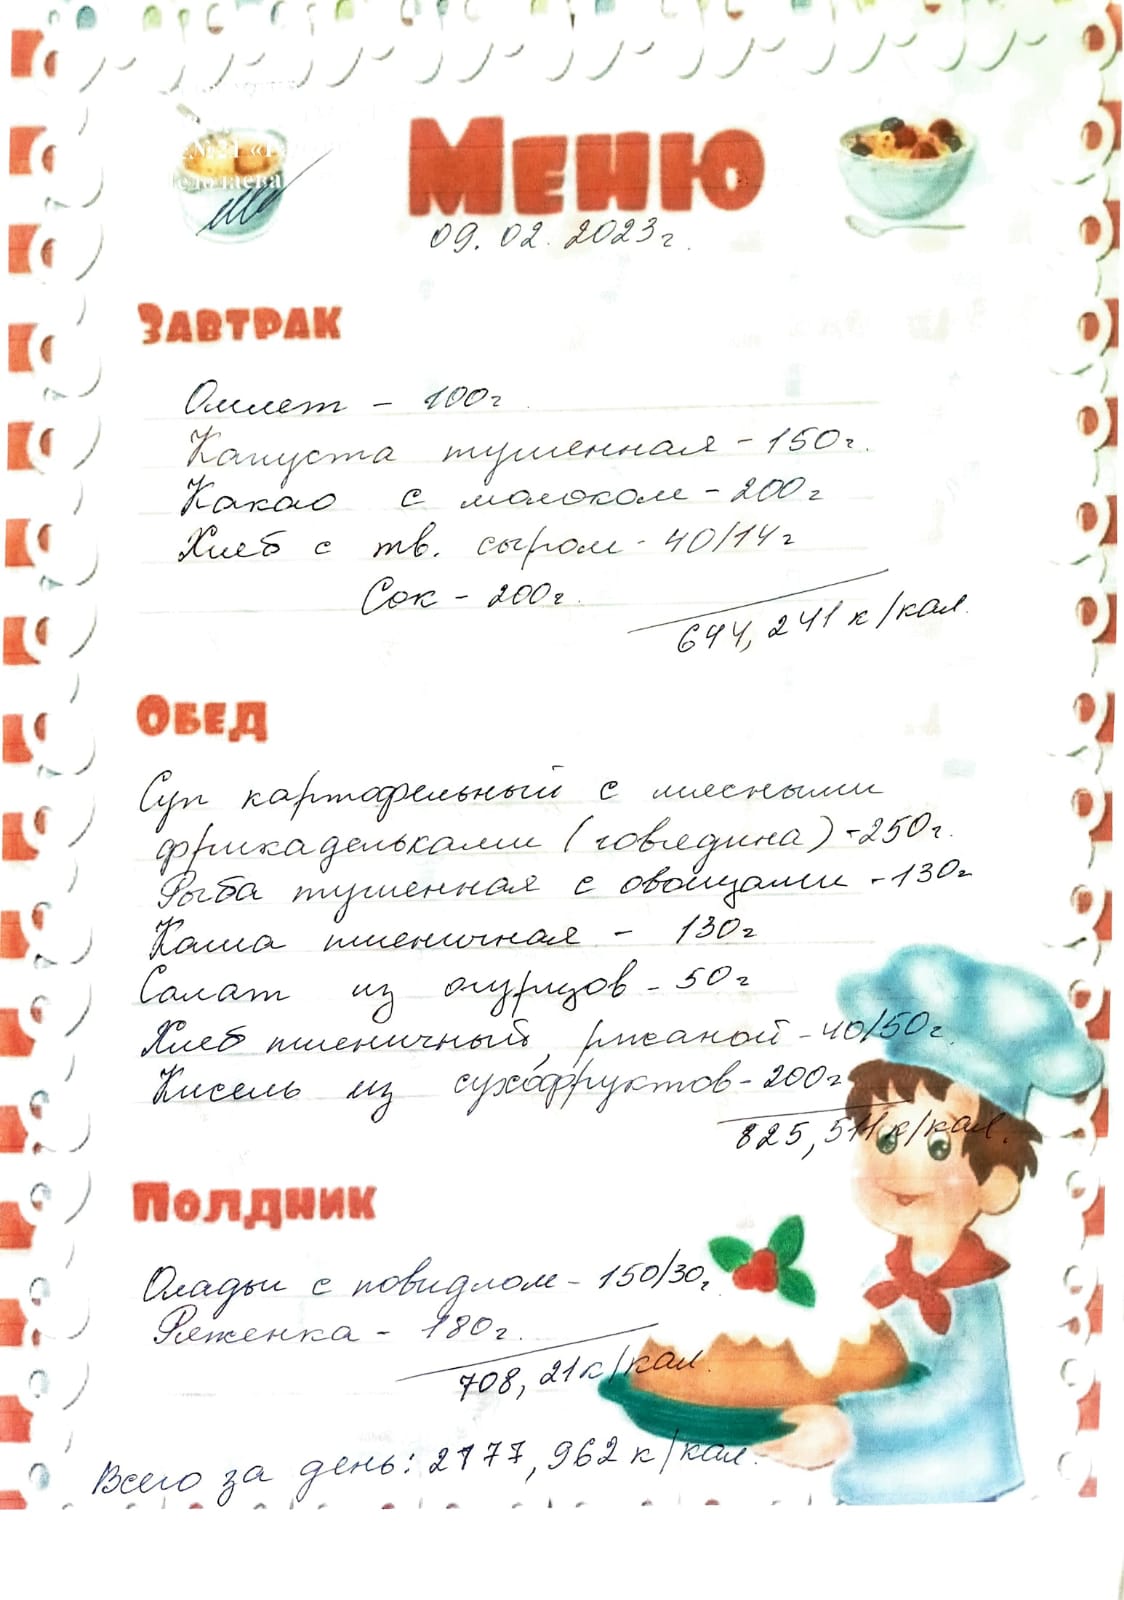 Меню
09.02.2023г.
Завтрак
Омлет - 100г
Капуста тушенная - 150г.
Какао с молоком - 200г
Хлеб с тв. сыром - 40/14г
Сок - 200г.
644,241 к/кал.
Обед
Суп картофельный с мясными
фрикадельками (говядина) - 250г.
Рыба тушенная с овощами - 130г
Каша пшеничная - 130г
Салат из огурцов - 50г
Хлеб пшеничный, ржаной - 40/50г.
Кисель из сухофруктов - 200г
825,511 к/кал.
Полдник
Оладьи с повидлом - 150/30г.
Ряженка - 180г.
708,21 к/кал.
Всего за день: 2177,962 к/кал.